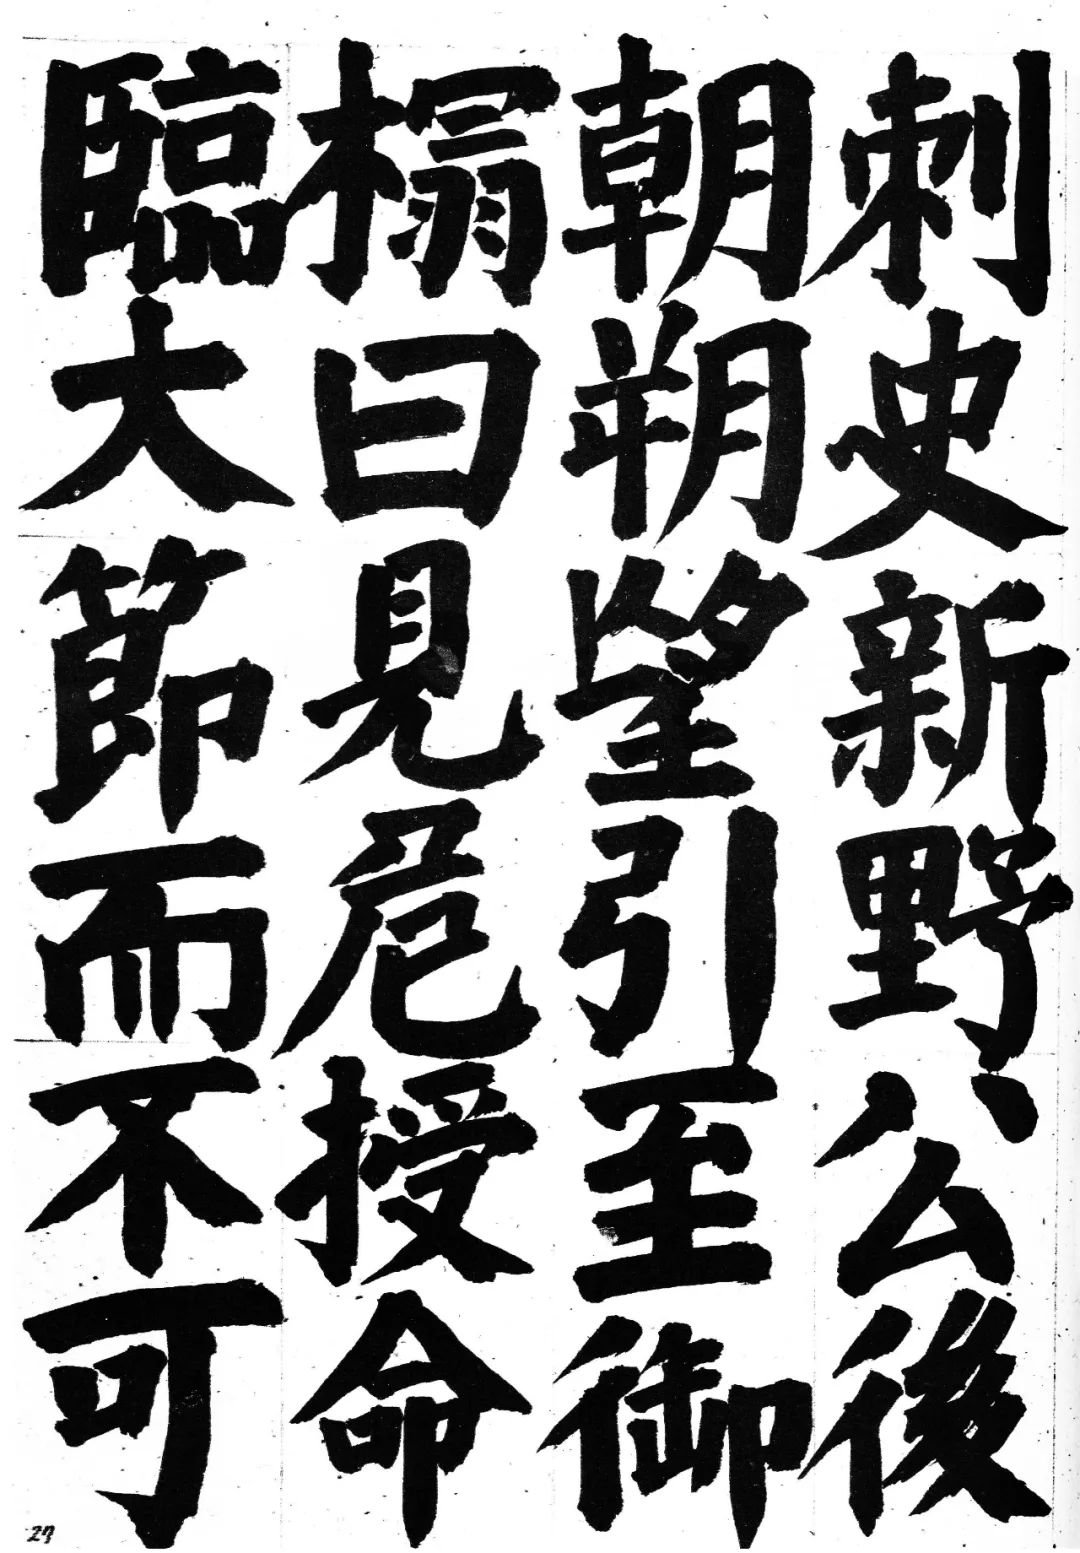 刺史新野公後
朝朔望引至御
榻曰見危授命
臨大節而不可
27